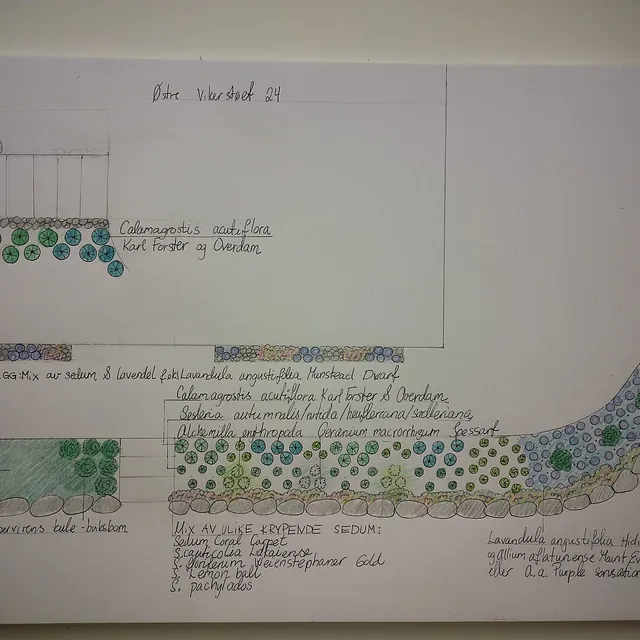 Østre Vikerstøet 24
Calamagrostis acutiflora
Karl Forster og Overdam
GG: Mix av sedum & lavendel f.eks Lavandula angustifolia Munstead Dwarf
Calamagrostis acutiflora Karl Forster & Overdam,
Sesleria autumnalis/nitida/heufleriana/sadleriana,
Alchemilla erythropoda Geranium macrorrhizum Spessart
pervirens kule-buksbom
MIX AV ULIKE KRYPENDE SEDUM:
Sedum Coral Carpet
S. cauticola Lidakense
S. floriferum Weienstephaner Gold
S. Lemon ball
S. pachyclados
Lavandula angustifolia Hid
og Allium aflatunense Mount Ev
eller A.a. Purple sensation